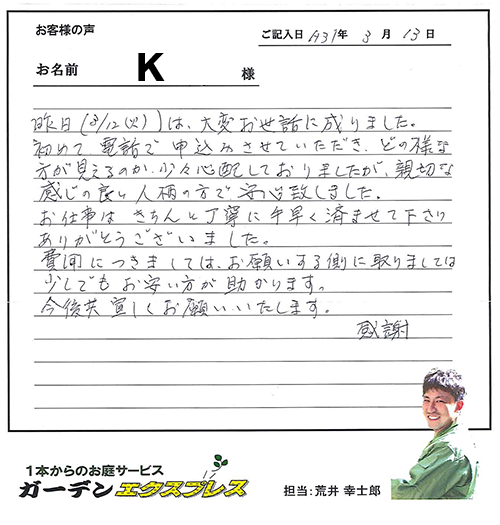 お客様の声
ご記入日 H31年 3月 13日
お名前 K 様
昨日(3/12(火))は、大変お世話に成りました。
初めて、電話で申込みさせていただき、どの様な
方が見えるのか、少々心配しておりましたが、親切な
感じの良い人柄の方で安心致しました。
お仕事はきちんと丁寧に手早く済ませて下さり
ありがとうございました。
費用につきましては、お願いする側に取りましては
少しでもお安い方が助かります。
今後共宜しくお願いいたします。
感謝
1本からのお庭サービス
ガーデンエクスプレス
担当:荒井 幸士郎